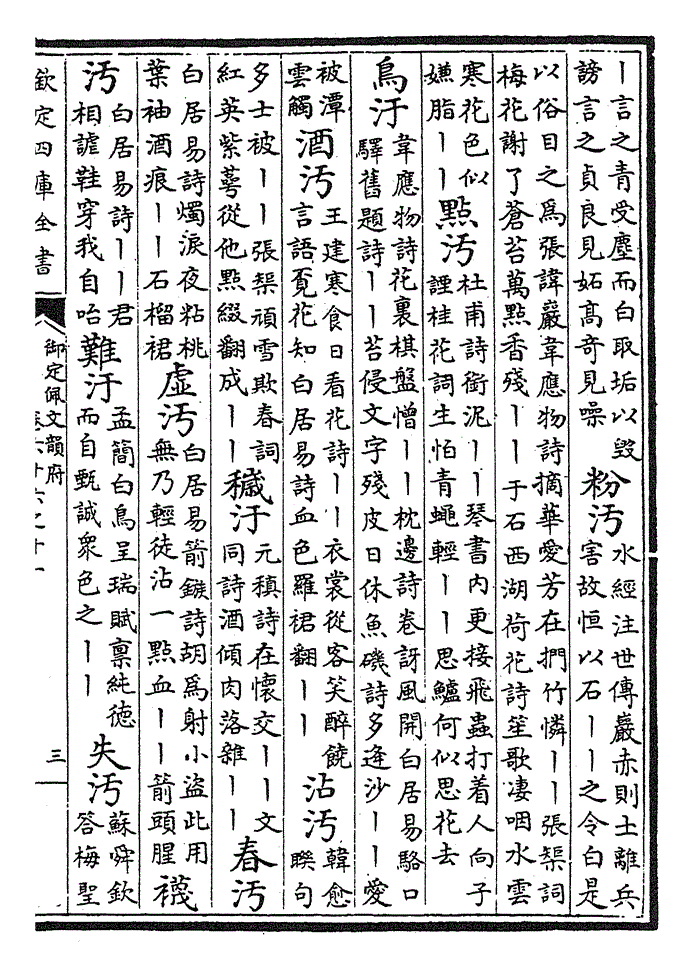 丨言之青受塵而白取垢以毁
謗言之貞良見妬高奇見噪
粉汚
水經注世傳巖赤則土離兵
害故恒以石丨丨之令白是
以俗目之爲張諱巖韋應物詩摘華愛芳在捫竹憐丨丨張榘詞
梅花謝了蒼苔萬點香殘丨丨于石西湖荷花詩笙歌凄咽水雲
寒花色似
嫌脂丨丨
點汚
杜甫詩銜泥丨丨琴書内更接飛蟲打着人向子
諲桂花詞生怕青蠅輕丨丨思鱸何似思花去
鳥汙
韋應物詩花裏棋盤憎丨丨枕邊詩卷訝風開白居易駱口
驛舊題詩丨丨苔侵文字殘皮日休魚磯詩多逢沙丨丨愛
被潭
雲觸
酒汚
王建寒食日看花詩丨丨衣裳從客笑醉饒
言語覔花知白居易詩血色羅裙翻丨丨
沾汚
韓愈
聨句
多士被丨丨張榘頑雪欺春詞
紅英紫萼從他點綴翻成丨丨
穢汙
元稹詩在懷交丨丨文
同詩酒傾肉落雜丨丨
春汚
白居易詩燭淚夜粘桃
葉袖酒痕丨丨石榴裙
虚汚
白居易箭鏃詩胡爲射小盗此用
無乃輕徒沾一點血丨丨箭頭腥
襪
汚
白居易詩丨丨君
相謔鞋穿我自咍
難汙
孟簡白烏呈瑞賦禀純德
而自甄誠衆色之丨丨
失汚
蘇舜欽
答梅聖
欽定四庫全書
御定佩文韻府
卷六十六之十一
三